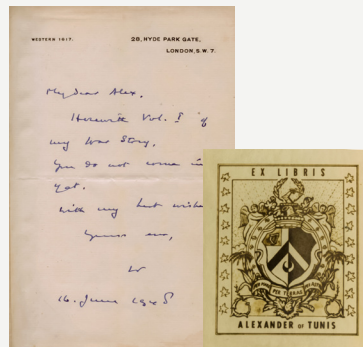 WESTERN 1617.
28, HYDE PARK GATE,
LONDON, S.W. 7.
My dear Alex,
Herewith Vol. I of
my War Story.
You do not come in
yet.
With my best wishes
Yours ever,
W
16. June 1948
EX LIBRIS
PER TERRAS
ALEXANDER OF TUNIS